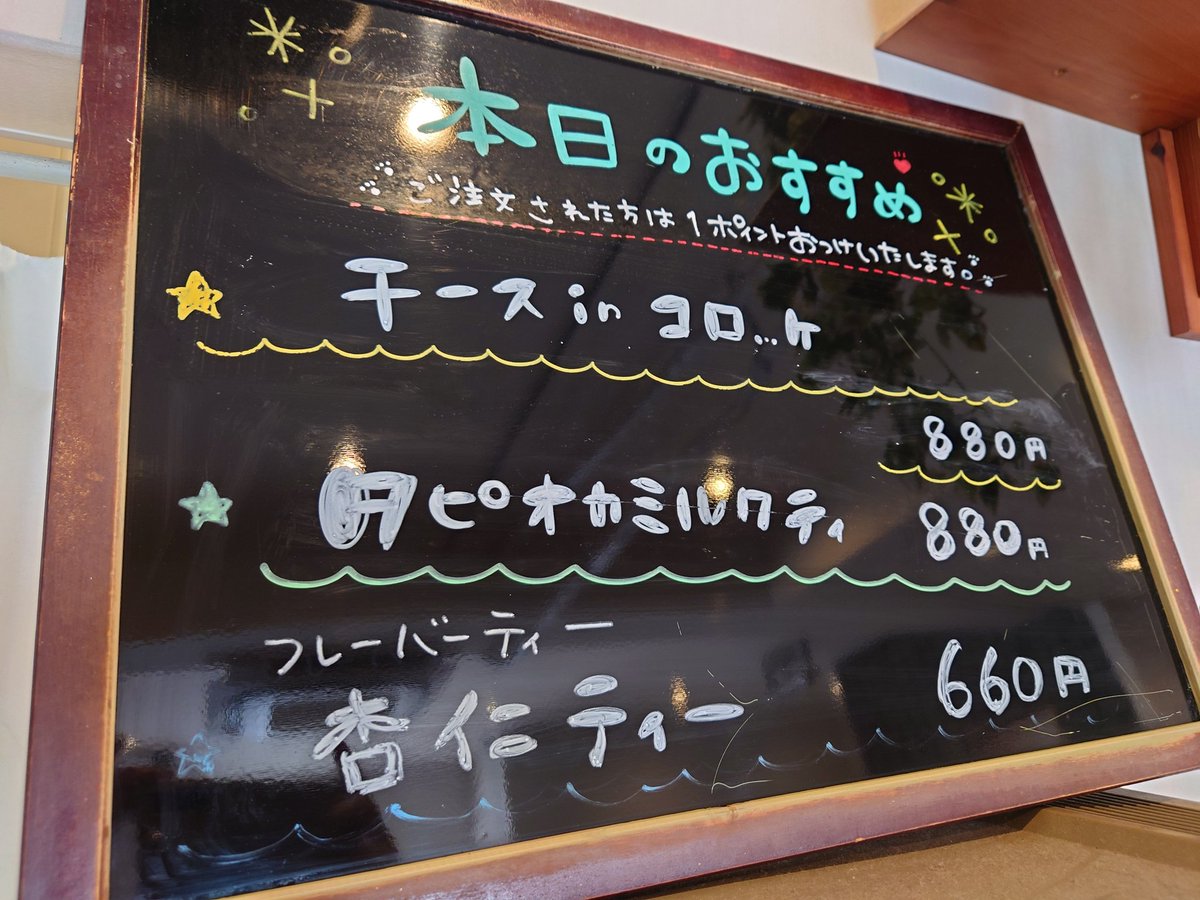 本日のおすすめ
ご注文された方は1ポイントおつけいたします。
チース in コロッケ
880円
タピオカミルクティ 880円
フレーバーティー
杏仁ティー 660円